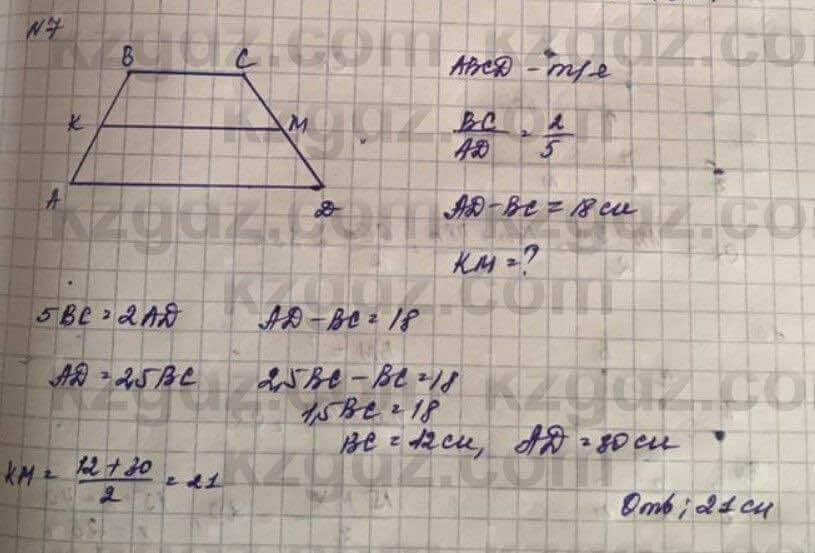 N7
B C
ABCD - тр/е
K M
BC/AD = 2/5
A D
AD-BC = 18 см
KM = ?
5BC = 2AD AD-BC = 18
AD = 2,5BC 2,5BC - BC = 18
1,5BC = 18
BC = 12 см, AD = 30 см
KM = (12+30)/2 = 21
Отв; 21 см
kzgdz.com